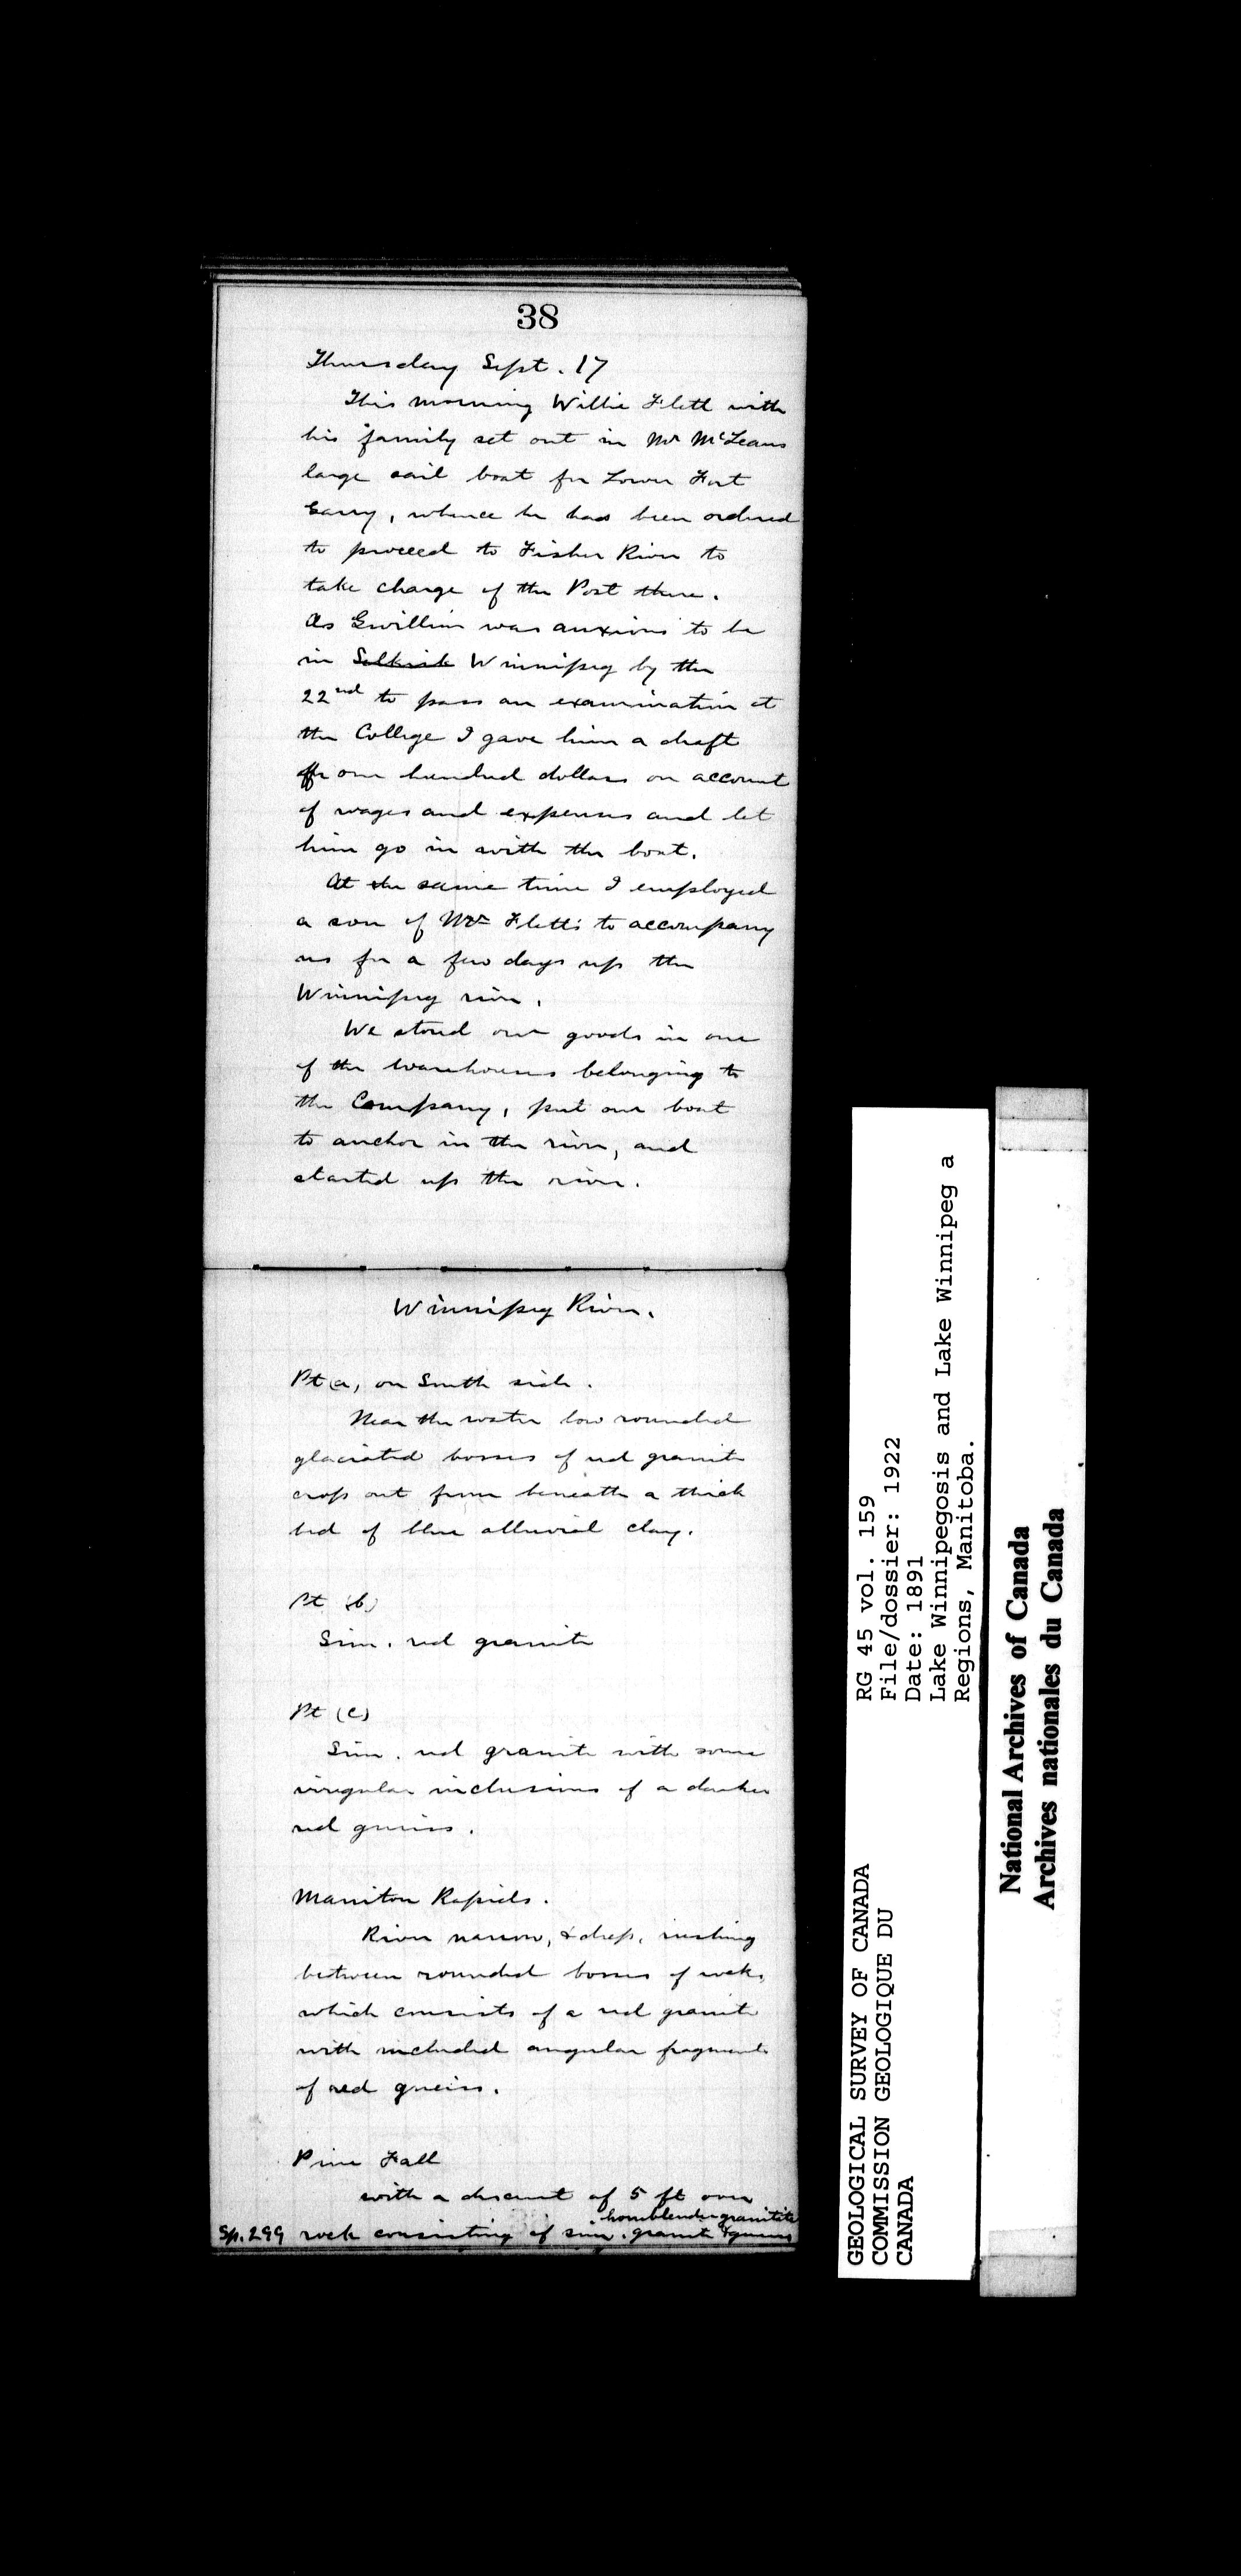 38
Thursday Sept. 17
This morning Willie Flett with
his family set out in Mr McLeans
large sail boat for Lower Fort
Garry, whence he has been ordered
to proceed to Fisher River to
take charge of the Post there.
As Gwillim was anxious to be
in Selkirk Winnipeg by the
22nd to pass an examination at
the College I gave him a draft
for one hundred dollars on account
of wages and expenses and let
him go in with the boat.
At the same time I employed
a son of Mrs Fletts to accompany
us for a few days up the
Winnipeg river.
We stored our goods in one
of the warehouses belonging to
the Company, put our boat
to anchor in the river, and
started up the river.
Winnipeg River.
Pt (a) on South side.
Near the water low rounded
glaciated bosses of red granite
crop out from beneath a thick
bed of blue alluvial clay.
Pt (b)
Sim. red granite
Pt (c)
Sim. red granite with some
irregular inclusions of a darker
red gneiss.
Manitou Rapids.
River narrow, & deep, rushing
between rounded bosses of rock,
which consists of a red granite
with included angular fragments
of red gneiss.
Pine Fall
with a descent of 5 ft over
hornblende granitite
Sp. 299 rock consisting of sim. granite & gneiss
GEOLOGICAL SURVEY OF CANADA
COMMISSION GEOLOGIQUE DU
CANADA
RG 45 vol. 159
File/dossier: 1922
Date: 1891
Lake Winnipegosis and Lake Winnipeg a
Regions, Manitoba.
National Archives of Canada
Archives nationales du Canada